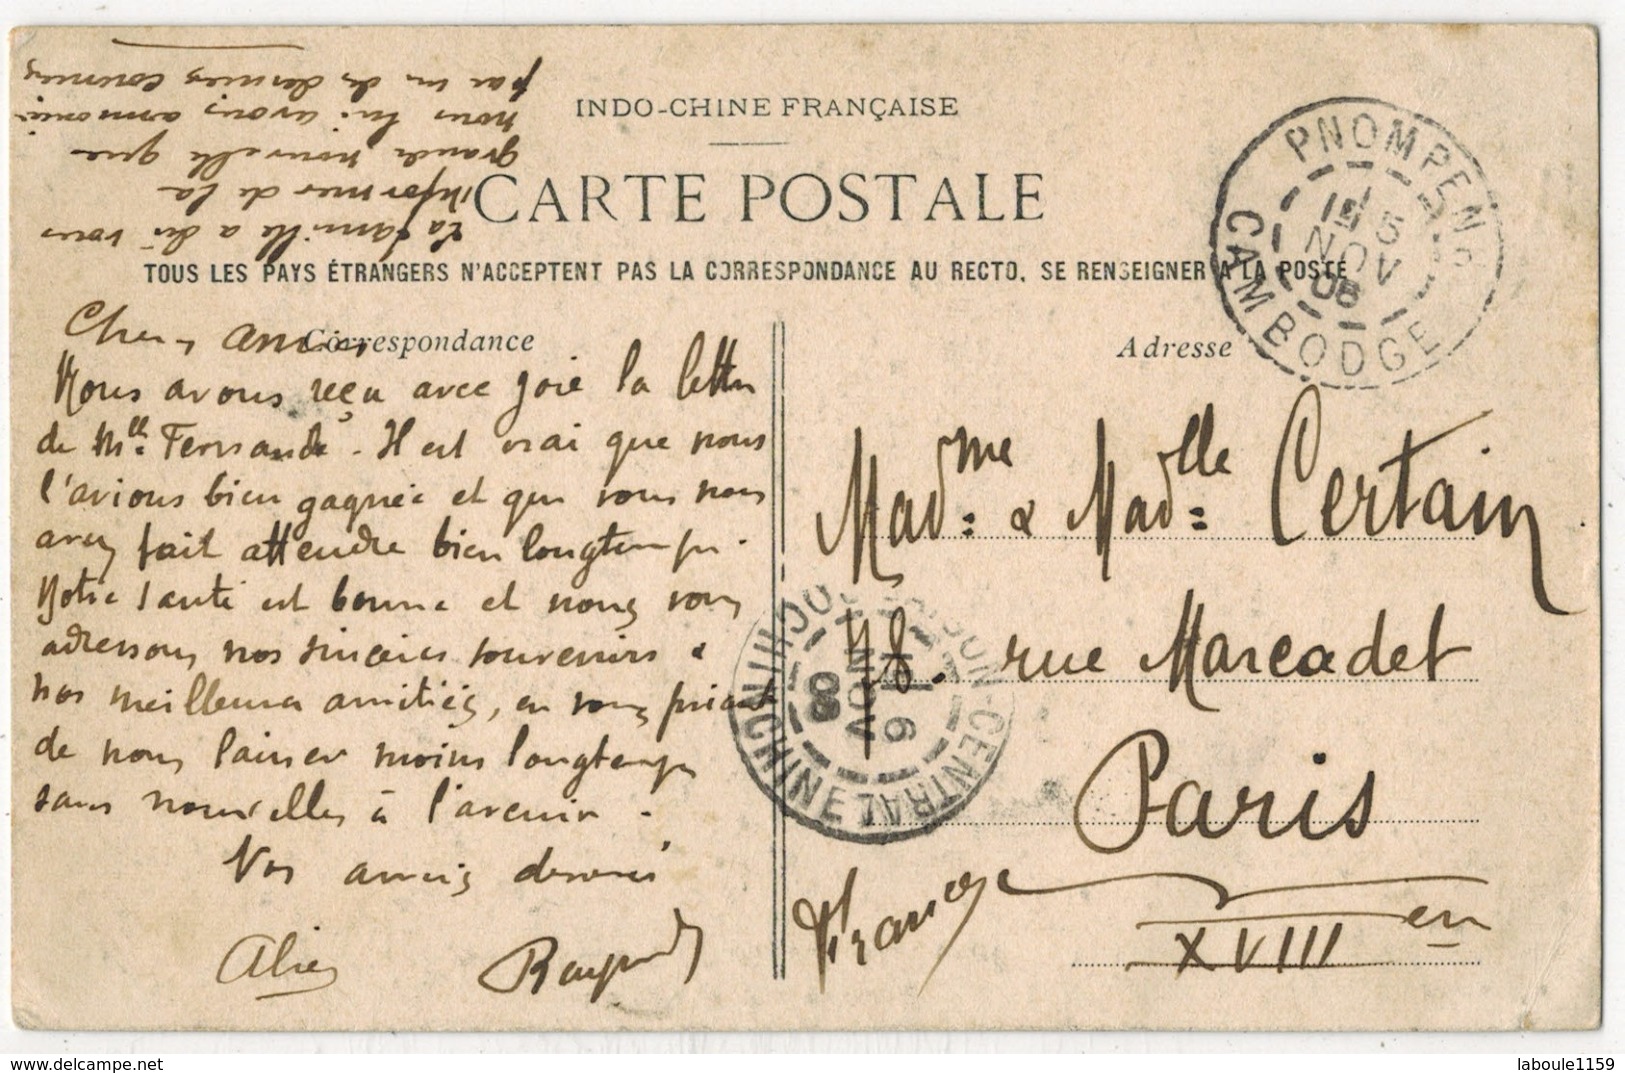 INDO-CHINE FRANÇAISE
CARTE POSTALE
TOUS LES PAYS ÉTRANGERS N'ACCEPTENT PAS LA CORRESPONDANCE AU RECTO. SE RENSEIGNER A LA POSTE
Correspondance
Adresse
PNOMPENH
15
NOV
08
CAMBODGE
La famille a dû vous
informer de la
grande nouvelle que
nous lui avons annoncée
par un de derniers courriers
Chers amis
Nous avons reçu avec joie la lettre
de Mlle Fernande. Il est vrai que nous
l'avions bien gagnée et que vous nous
avez fait attendre bien longtemps.
Notre santé est bonne et nous vous
adressons nos sincères souvenirs &
nos meilleures amitiés, en vous priant
de nous laisser moins longtemps
sans nouvelles à l'avenir.
Vos amis dévoués
Alice Raymond
Mad me & Mad lle Certain
78. rue Marcadet
Paris
France
XVIII en
SAIGON-CENTRAL
9
NOV
08
COCHINCHINE
delcampe.net
laboule1159